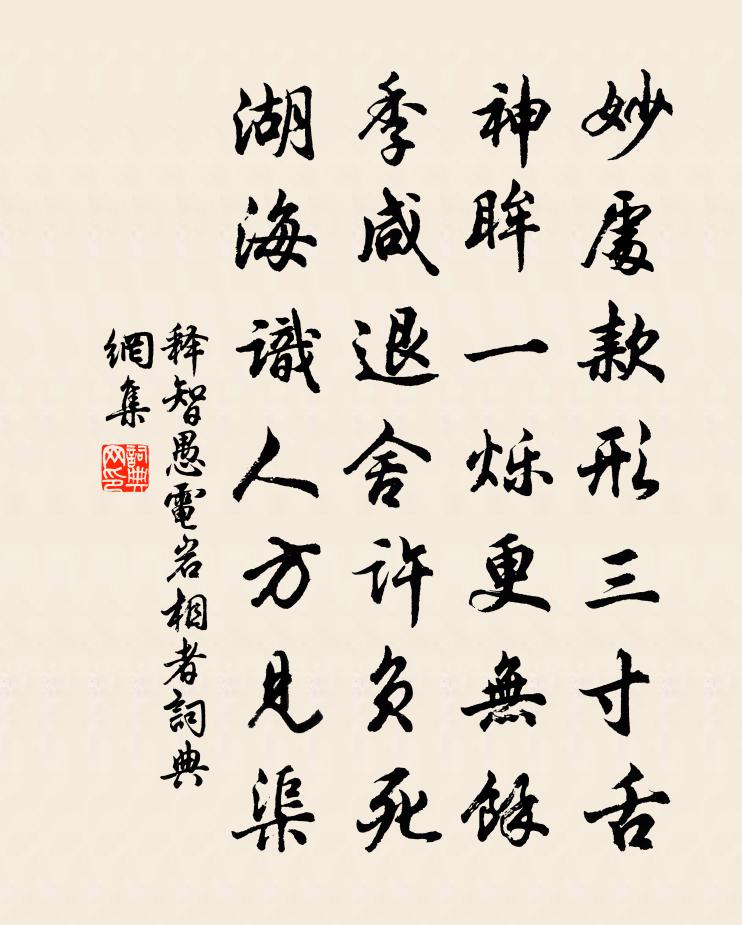 妙處款形三寸舌
神眸一烁更無餘
季咸退舍許负死
湖海識人方見渠
释智愚電岩相者詞典
網集
詞典
网印